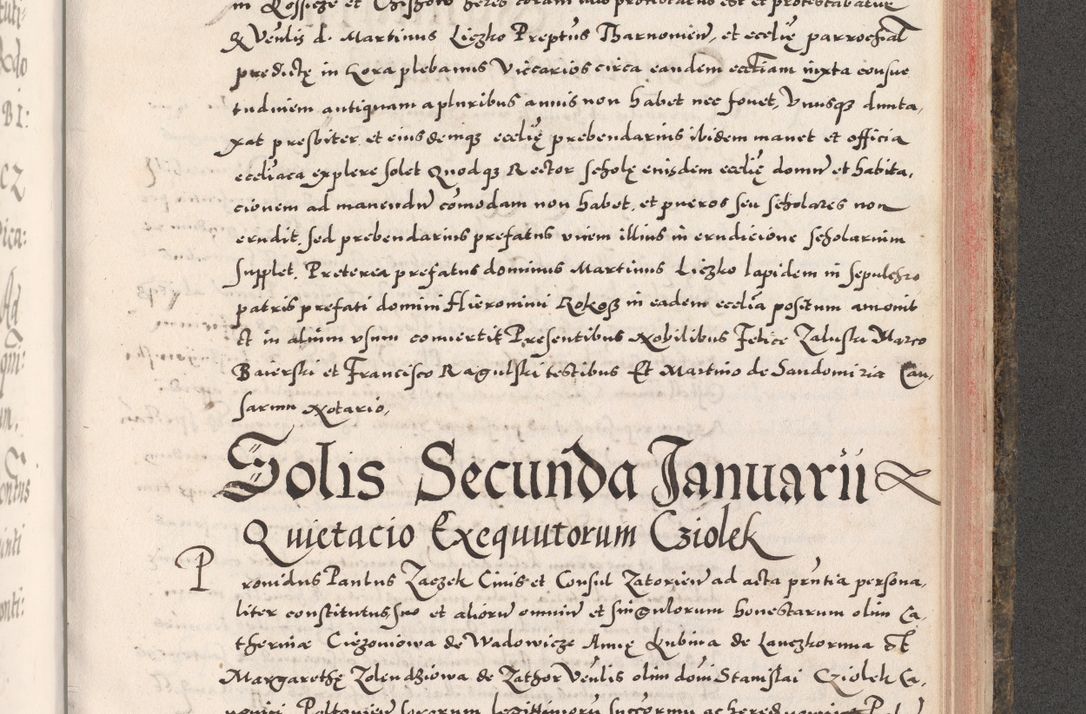 in Rossicze et Chichoto heres coram suo protestatus est et protestabatur
& Venlis d. Martinus Liczko Preptus Tharnovien, et ecclie parrochial
predicte in Cora plebanus Viccarios circa eandem ecctiam iuxta consue
tudinem antiquam a pluribus annis non habet nec fovet, Unusq3 dunta,
xat presbiter et eiusdemq3 ecclie prebendarius ibidem manet et officia
eccliaca explere solet Quodq3 Rector schole eiusdem ecclie domum et habita,
cionem ad manendum comodam non habet, et pueros seu scholares non
erudit, sed prebendarius prefatus vicem illius in erudicione scholarium
supplet, Preterea prefatus dominus Martinus Liczko lapidem in sepulchro
patris prefati domini Hieronimi Rokosz in eadem ecclia positum amonit
et in alium usum convertit Presentibus Nobilibus Felice Zaluski Marco
Baierski et Francisco Ragulski testibus Et Martino de Sandomiria Cau,
sarum Notario,
Solis Secunda Januarii
Quietacio Exequutorum Cziolek
Providus Paulus Zaczek Civis et Consul Zatorien ad acta pntia persona,
liter constitutus, suo et aliorum omnium et singulorum honestarum olim Ca,
therinae Ciezoniowa de Wadowicze Anne Kubina de Lanczkoruna Et
Margarethe Zolendziowa de Zathor Venlis olim domi Stanislai Cziolek Ca,
nonici Poltovien sororum legittimorum successorum ac heredum